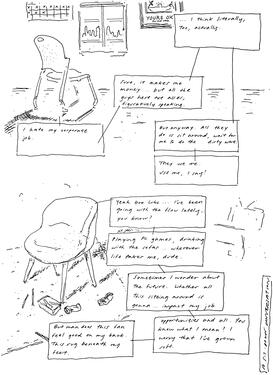 YOURS OK
... I think literally,
Too, actually.
Sure, it makes me
money... but all the
guys here got asses,
figuratively speaking.
I hate my corporate
job.
But anyway all they
do is sit around, wait for
me to do the dirty work.
They use me.
Use me, I sang!
Yeah bro like... I've been
going with the flow lately,
you know?
Playing PC games, drinking
with the sofas... wherever
life takes me, dude.
Sometimes I wonder about
the future. Whether all
this sitting around is
gonna impact my job
opportunities and all. You
know what I mean? I
worry that I've gotten
soft.
But man does this fan
feel good on my back.
This rug beneath my
feet.